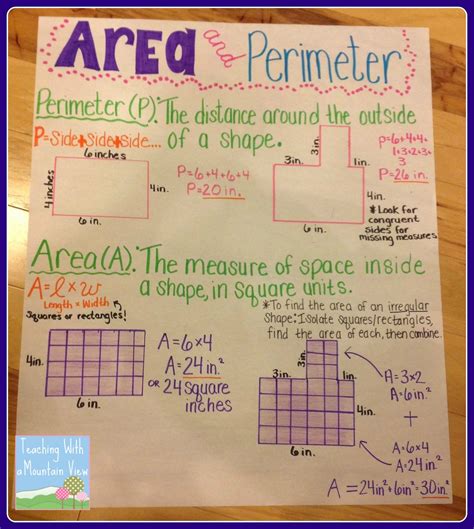 Area and Perimeter
Perimeter (P): The distance around the outside
of a shape.
P=Side+Side+Side...
6 inches
4 inches
4in.
6 in.
P=6+4+6+4
P=20in.
3in.
3in.
1in.
4in.
6 in.
P=6+4+
1+3+2+3+
3
P=26 in.
*Look for
congruent
sides for
missing measures
Area (A): The measure of space inside
a shape, in square units.
A=l×w
Length × Width
Squares or rectangles!
4in.
6in.
A=6×4
A=24in.²
or 24 Square
inches
*To find the area of an irregular
shape: Isolate squares/rectangles,
find the area of each, then combine.
3in.
1in.
1in.
4in.
6in.
A=3×2
A=6in.²
+
A=6×4
A=24in.²
A=24in²+6in²=30in.²
Teaching With
a Mountain View